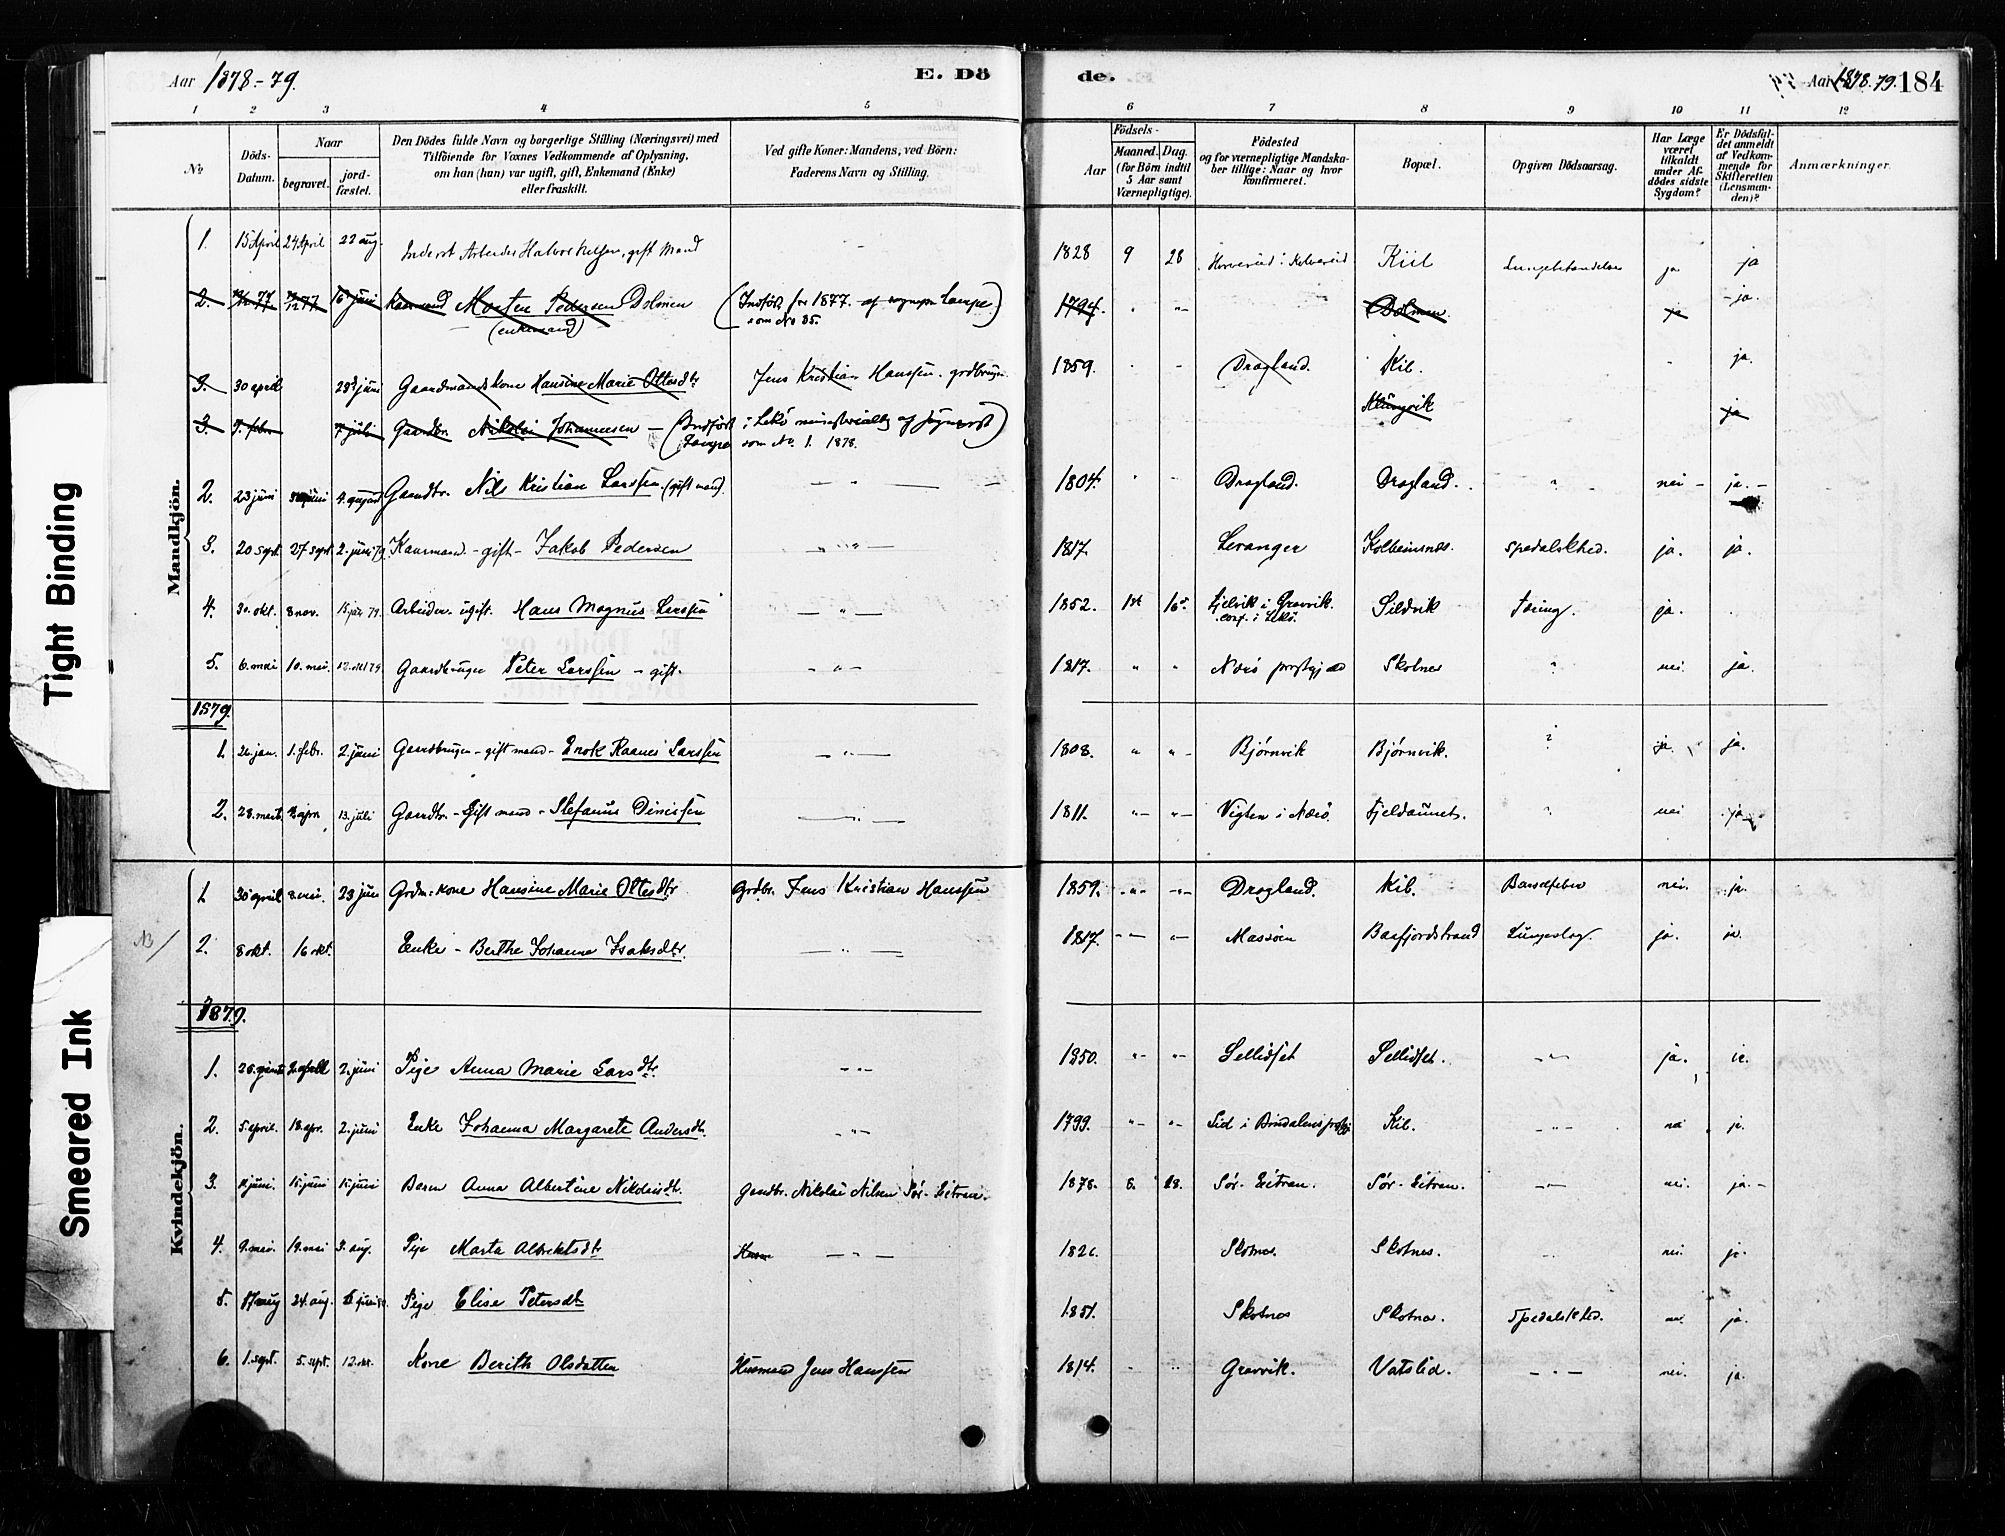 Aar 1878-79.
E. Dö
de.
Aar 1878.79. 184
1 2 3 4 5 6 7 8 9 10 11 12
No.
Döds-Datum.
Naar
begravet.
jord-fæstet.
Den Dödes fulde Navn og borgerlige Stilling (Næringsvei) med
Tilföiende for Voxnes Vedkommende af Oplysning,
om han (hun) var ugift, gift, Enkemand (Enke)
eller fraskilt.
Ved gifte Koner: Mandens, ved Börn:
Faderens Navn og Stilling.
Födsels-
Aar
Maaned. Dag.
(for Börn indtil
5 Aar samt
Værnepligtige).
Födested
og for værnepligtige Mandska-
ber tillige: Naar og hvor
konfirmeret.
Bopæl.
Opgiven Dödsaarsag.
Har Læge
været
tilkaldt
under Af-
dødes sidste
Sygdom?
Er Dödsfal-
det anmeldt
af Vedkom-
mende for
Skifteretten
(Lensman-
den)?
Anmærkninger.
Mandkjön.
1. 15 April 24 April 22 aug. Inderst Arbeider gift Mand 1828 9 28 Kiil ja ja
2. 77 77 16 juni Morten Pedersen Dolmen (Indført for 1877. af sognepr Lampe) 1794. Dolmen ja ja.
(enkemand) som No 35.
3. 30 april 23d juni Gaardmandskone Hansine Marie Ottesdtr Jens Kristian Hanssen. grdbruger 1859. Dragland. Kil. ja.
3. 7. febr. 7 juli Gaardbr. Nikolai Johannesen - (Indført i Lekø ministerialb af sognepr Lampe som No. 1. 1878.) ja
2. 23 juni Gaardbr. Nils Kristian Larssen. (gift mand) 1804. Dragland. Dragland. nei ja.
3. 20 sept. 27 sept. 2. juni 79. gift - Jakob Pedersen 1817. Levanger Kolbeinsnes. Spedalskhed. ja. ja.
4. 30. okt. 8 nov. 15 jan 79. Arbeider. ugift. Hans Magnus Larssen 1852. Gravvik. conf. i Lekø. Sildvik Tæring. ja.
5. 6. mai 10. mai. 12. okt 79. Gaardbruger Peter Larssen - gift. 1817. Nærø Skotnes nei. ja.
1879.
1. 26. jan. 1. febr. 2. juni Gaardbruger - gift mand - Enok Larssen 1808. Bjørnvik Bjørnvik. ? ja. ja.
2. 28. marts 13. juli Gaardbr. - Gift mand - Stefanus Dinissen 1811. Vigten i Nærø. Fjeldaunet. nei ja
Kvindekjön.
1. 30 april 8. mai. 23 juni Grdm: kone Hansine Marie Ottesdtr. Grdbr. Jens Kristian Hanssen 1859. Dragland. Kil. Barselfeber nei. ja.
NB/ 2. 8 okt. 16 okt. Enke - Berthe Johanna Isaksdtr. 1817. Massøen ja. ja.
1879.
1. 2. juni Pige Anna Marie Larsdtr. 1850. Sellidset Sellidset. ja. ja.
2. 5. april. 18. apr. 2. juni Enke Johanna Margarete Andersdtr. 1799. Kil. nei ja.
3. juni. 15 juni 15 juni Barn Anna Albertine Nikolaisdtr. Gaardbr. Nikolai Nilsen Sør-Eitran. 1878. 8. 28. Sør-Eitran. Sør-Eitran. nei. ja.
4. 9. mai. 19. mai 3. aug. Pige Marta Albrektsdtr Skotnes. Skotnes. nei. ja.
5. 17 aug 24. aug. Pige Elise Petersdtr 1851. Skotnes Skotnes. Spedalskhed. nei. ja.
6. 1. sept. 5. sept. 12. okt. Kone Berith Olsdatter Husmand Jens Hanssen 1814. Gravvik. Vatslid. nei. ja.
Tight Binding
Smeared Ink